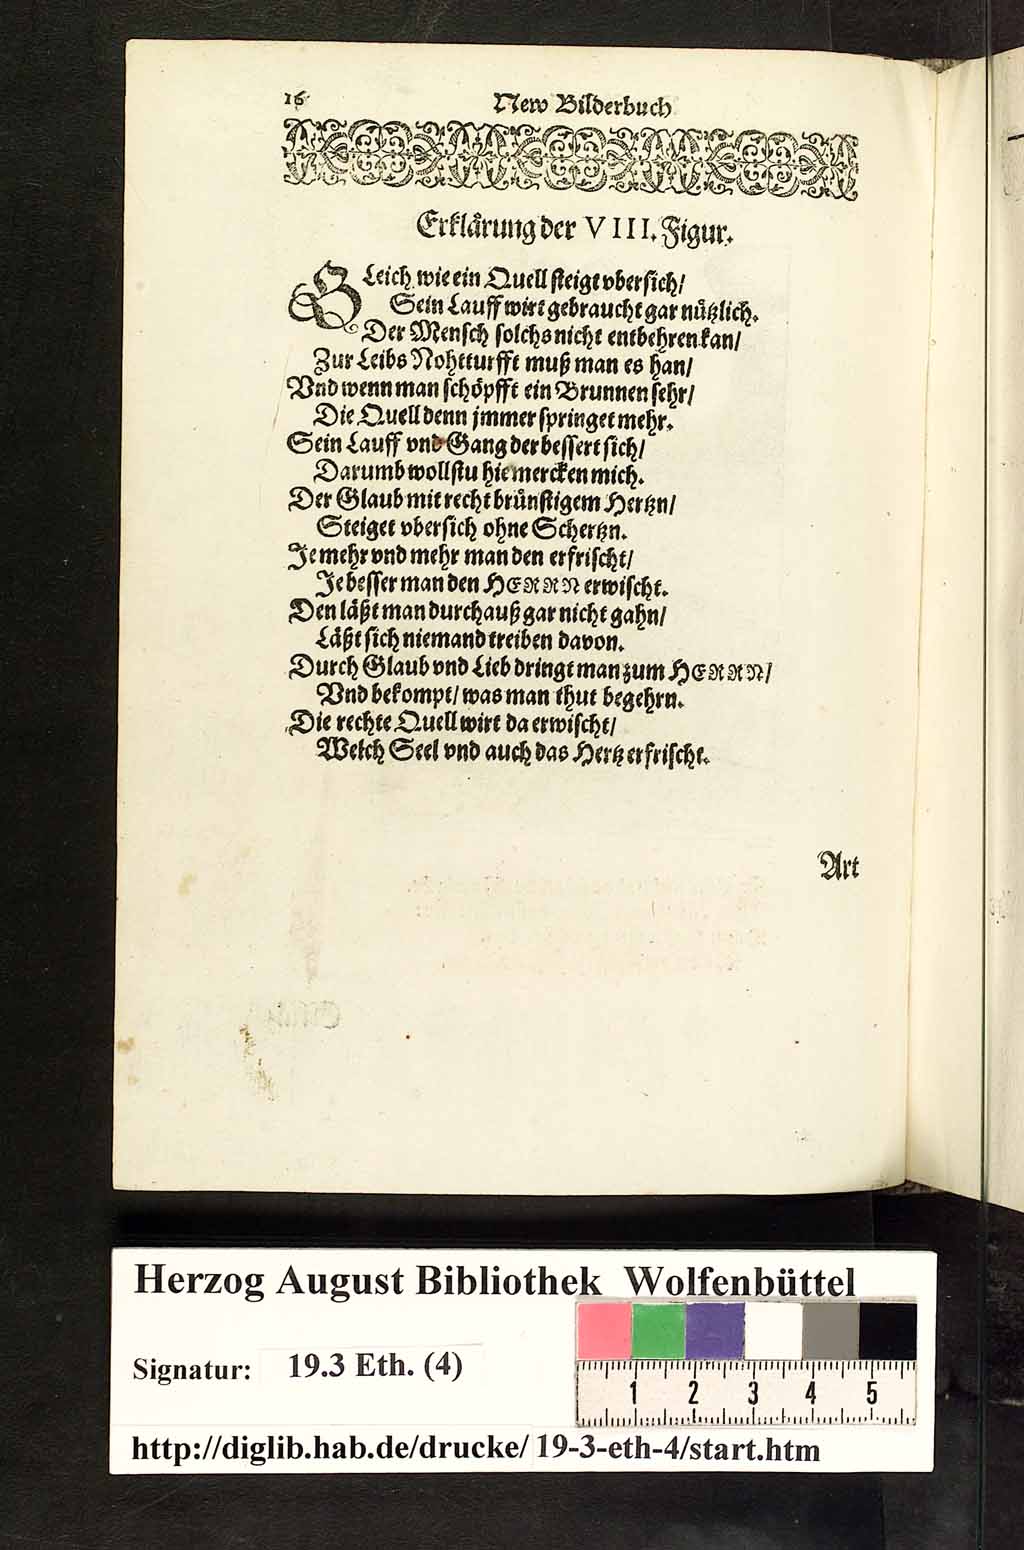 16 New Bilderbuch
Erklärung der VIII. Figur.
GLeich wie ein Quell steigt vbersich/
Sein Lauff wirt gebraucht gar nützlich.
Der Mensch solchs nicht entbehren kan/
Zur Leibs Nohtturfft muß man es han/
Vnd wenn man schöpfft ein Brunnen sehr/
Die Quell denn jmmer springet mehr.
Sein Lauff vnd Gang der bessert sich/
Darumb wollstu hie mercken mich.
Der Glaub mit recht brünstigem Hertzn/
Steiget vbersich ohne Schertzn.
Je mehr vnd mehr man den erfrischt/
Je besser man den HERRN erwischt.
Den läßt man durchauß gar nicht gahn/
Läßt sich niemand treiben davon.
Durch Glaub vnd Lieb dringt man zum HERRN/
Vnd bekompt/ was man thut begehrn.
Die rechte Quell wirt da erwischt/
Welch Seel vnd auch das Hertz erfrischt.
Art
Herzog August Bibliothek Wolfenbüttel
Signatur: 19.3 Eth. (4)
1 2 3 4 5
http://diglib.hab.de/drucke/19-3-eth-4/start.htm